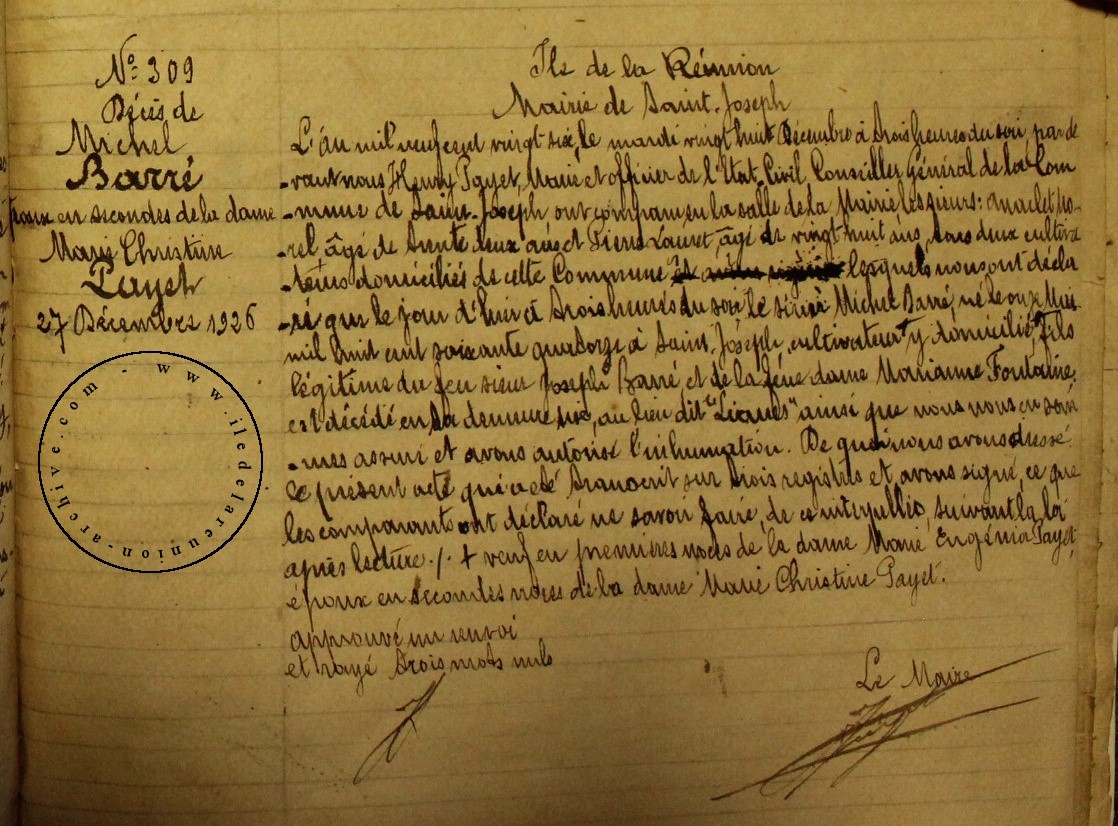 N° 309
Décès de
Michel
Barré
époux en secondes de la dame
Marie Christine
Payet
27 Décembre 1926
www.iledelareunion-archive.com -
Ile de la Réunion
Mairie de Saint-Joseph
L'an mil neuf cent vingt six, le mardi vingt huit Décembre à trois heures du soir, par de
-vant nous Henry Payet, Maire et officier de l'Etat-Civil, Conseiller Général de la Com
-mune de Saint-Joseph ont comparu en la salle de la Mairie les sieurs: Anaclet Mo-
rel âgé de trente deux ans et Pierre Lauret, âgé de vingt huit ans, tous deux cultiva
-teurs domiciliés de cette Commune lesquels nous ont décla
-ré que le jour d'hier à trois heures du soir le sieur Michel Barré, né le onze Mai
mil huit cent soixante quatorze à Saint-Joseph, cultivateur + y domicilié, fils
légitime du feu sieur Joseph Barré et de la feue dame Marianne Fontaine,
est décédé en sa demeure sise, au lieu dit "Lianes" ainsi que nous nous en som
-mes assuré et avons autorisé l'inhumation. De quoi nous avons dressé
le présent acte qui a été transcrit sur trois registres et avons signé, ce que
les comparants ont déclaré ne savoir faire, de ce interpellés, suivant la loi
après lecture ./. + veuf en premières noces de la dame Marie Eugénia Payet,
époux en secondes noces de la dame Marie Christine Payet.
approuvé un renvoi
et rayé trois mots nuls
Le Maire